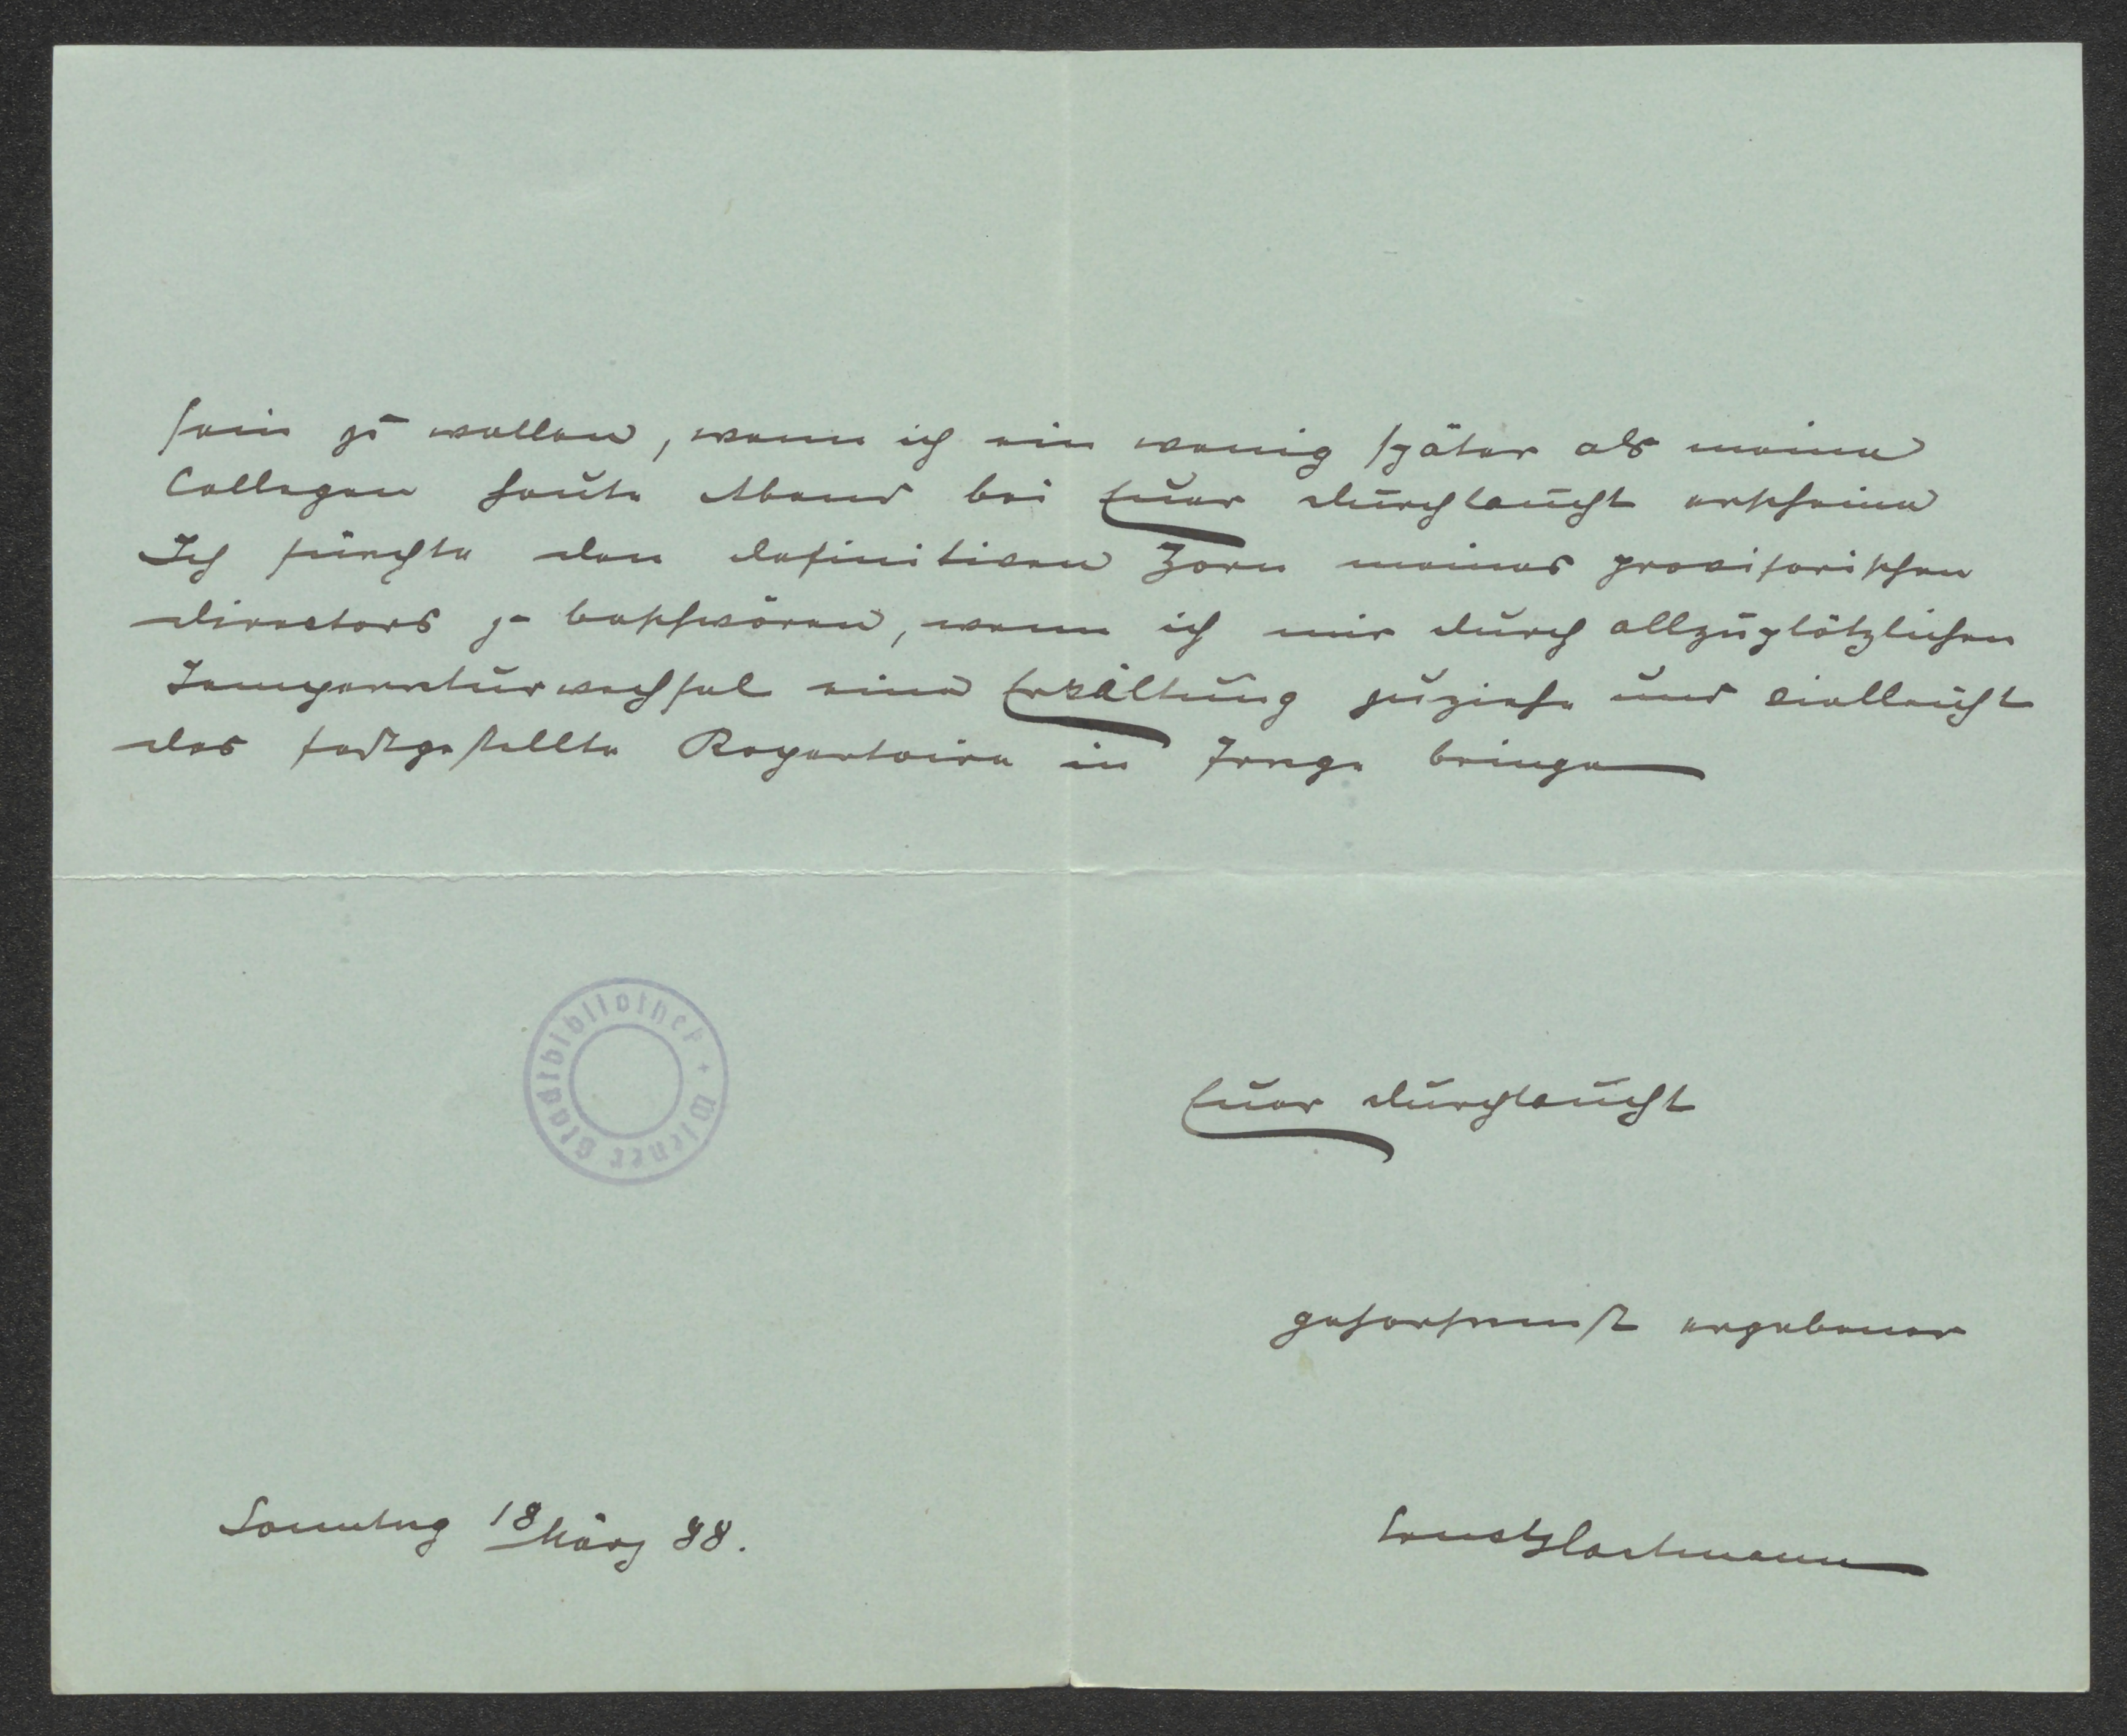 sein zu wollen, wenn ich ein wenig später als meine
Collegen heute Abend bei Euer Durchlaucht erscheine
Ich fürchte den definitiven Zorn meines provisorischen
Directors zu beschwören, wenn ich mir durch allzuplötzlichen
Temperaturwechsel eine Erkältung zuziehe und vielleicht
das festgestellte Repertoire in Frage bringe
Euer Durchlaucht
gehorsamst ergebener
Sonntag 18 März 88.
Ernst Hartmann
Wiener Stadtbibliothek +